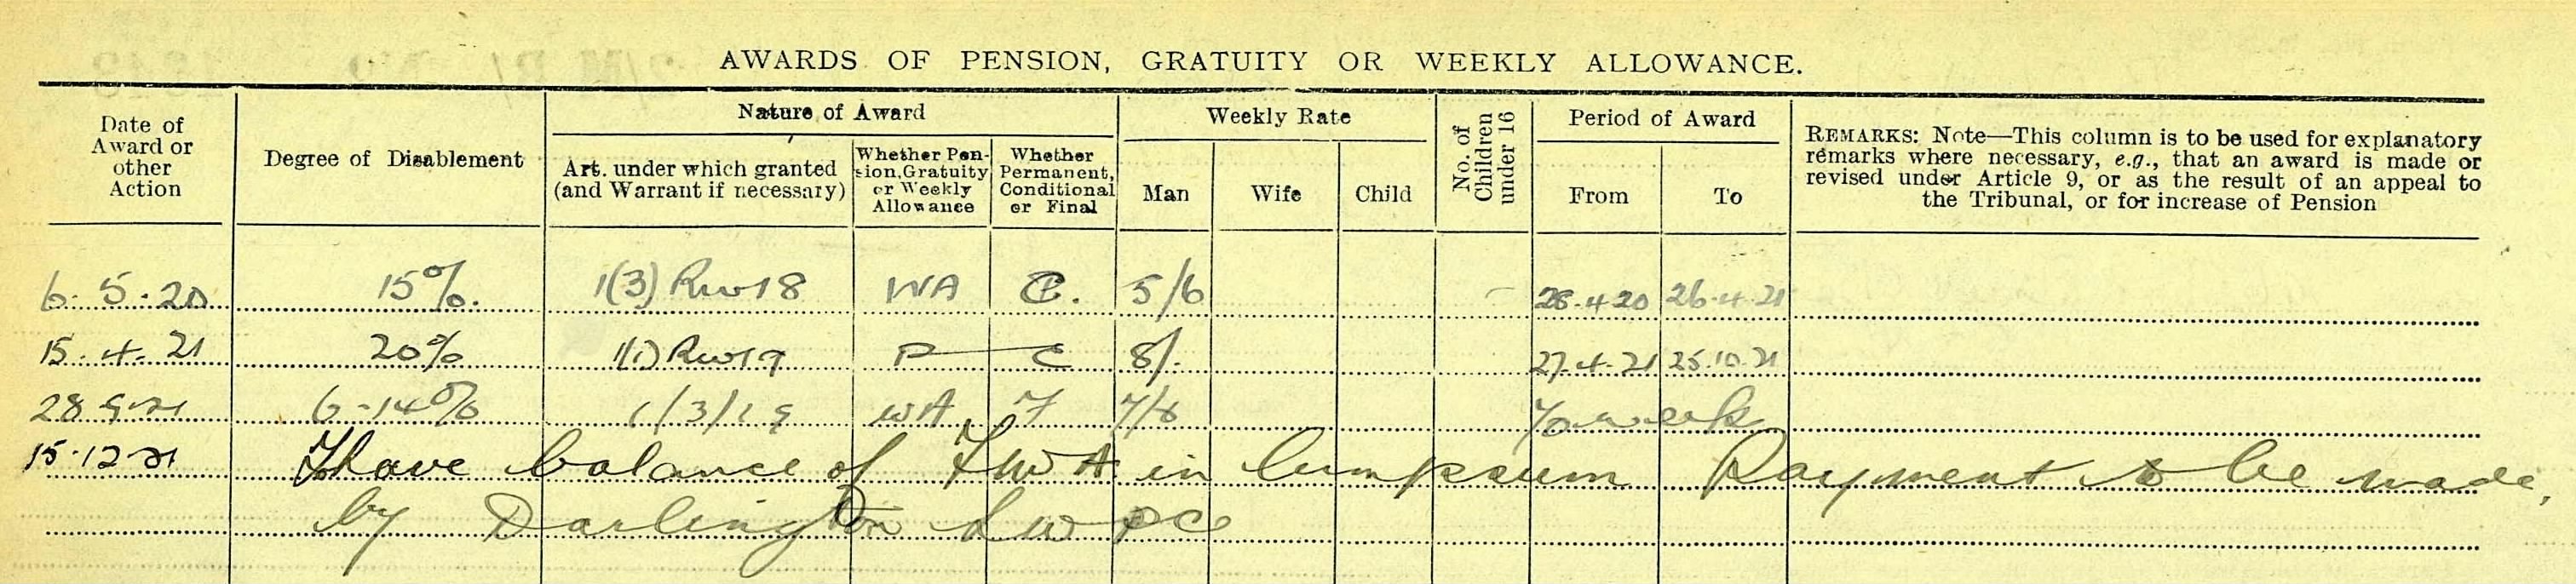 AWARDS OF PENSION, GRATUITY OR WEEKLY ALLOWANCE.
Date of Award or other Action
Degree of Disablement
Nature of Award
Art. under which granted (and Warrant if necessary)
Whether Pension, Gratuity or Weekly Allowance
Whether Permanent, Conditional or Final
Weekly Rate
Man
Wife
Child
No. of Children under 16
Period of Award
From
To
REMARKS: Note—This column is to be used for explanatory
remarks where necessary, e.g., that an award is made or
revised under Article 9, or as the result of an appeal to
the Tribunal, or for increase of Pension
6.5.20 15%. 1(3) RW18 WA C. 5/6 - 28.4.20 26.4.21
15.4.21 20% 1(1) RW19 P — C 8/. 27.4.21 25.10.21
28.9.21 6-14% 1/3/19 WA F 7/6 70 week
15.12.21 have balance of FWA in lump sum Payment to be made,
by Darlington LWPC